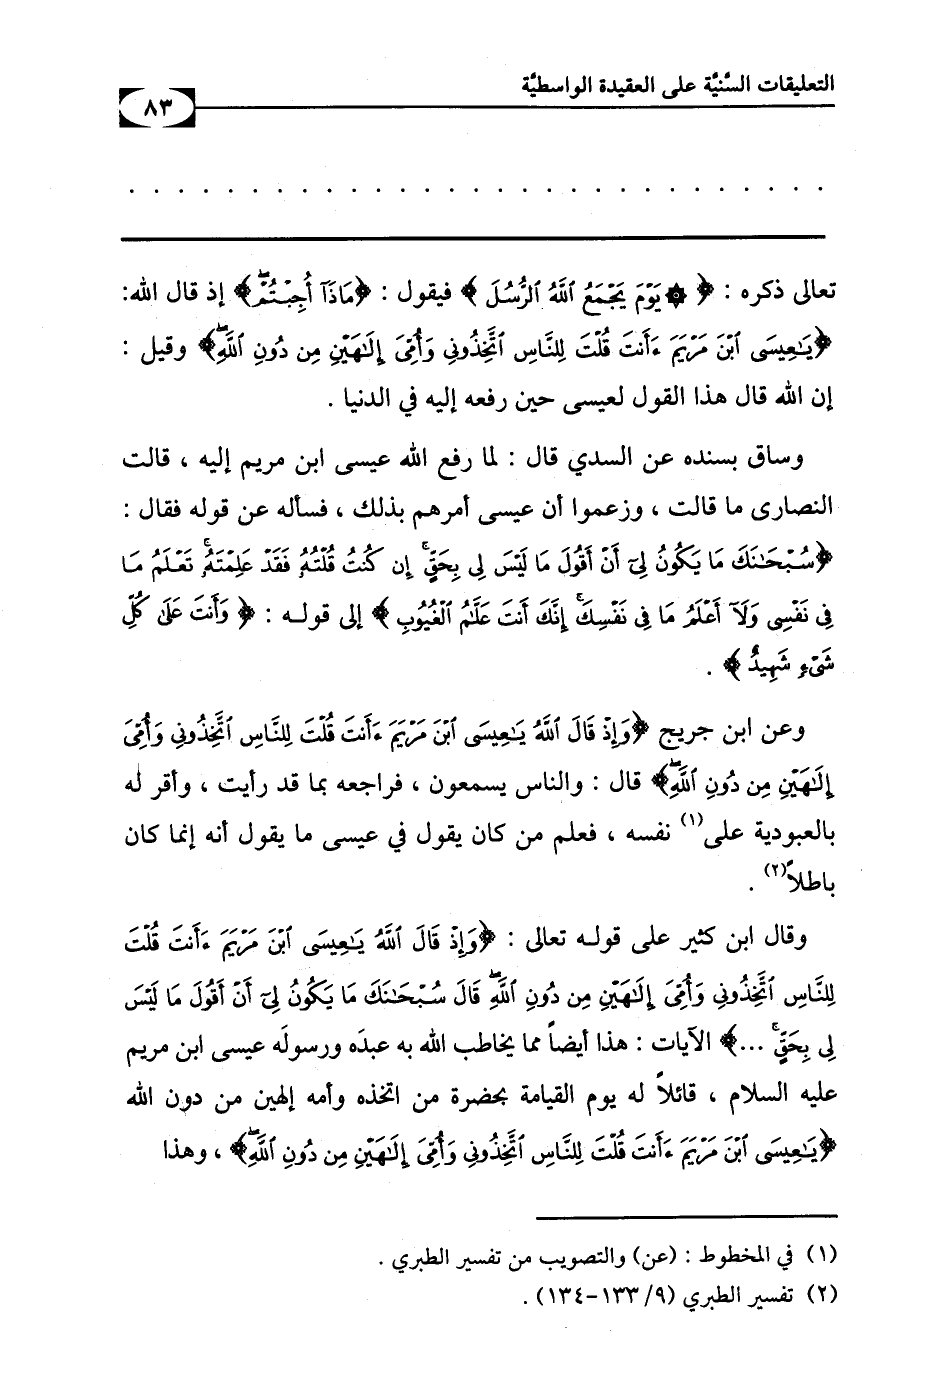 التعليقات السُّنيَّة على العقيدة الواسطيَّة
٨٣
. . . . . . . . . . . . . . . . . . . . . . . . . . . . .
تعالى ذكره : ﴿ ۞ يَوْمَ يَجْمَعُ ٱللَّهُ ٱلرُّسُلَ ﴾ فيقول : ﴿مَاذَآ أُجِبْتُمْۖ﴾ إذ قال الله:
﴿يَٰعِيسَى ٱبْنَ مَرْيَمَ ءَأَنتَ قُلْتَ لِلنَّاسِ ٱتَّخِذُونِي وَأُمِّيَ إِلَٰهَيْنِ مِن دُونِ ٱللَّهِۖ﴾ وقيل :
إن الله قال هذا القول لعيسى حين رفعه إليه في الدنيا .
وساق بسنده عن السدي قال : لما رفع الله عيسى ابن مريم إليه ، قالت
النصارى ما قالت ، وزعموا أن عيسى أمرهم بذلك ، فسأله عن قوله فقال :
﴿سُبْحَٰنَكَ مَا يَكُونُ لِيٓ أَنْ أَقُولَ مَا لَيْسَ لِي بِحَقٍّۚ إِن كُنتُ قُلْتُهُۥ فَقَدْ عَلِمْتَهُۥۚ تَعْلَمُ مَا
فِي نَفْسِي وَلَآ أَعْلَمُ مَا فِي نَفْسِكَۚ إِنَّكَ أَنتَ عَلَّٰمُ ٱلْغُيُوبِ ﴾ إلى قولـه : ﴿ وَأَنتَ عَلَىٰ كُلِّ
شَيْءٍ شَهِيدٌ ﴾ .
وعن ابن جريج ﴿وَإِذْ قَالَ ٱللَّهُ يَٰعِيسَى ٱبْنَ مَرْيَمَ ءَأَنتَ قُلْتَ لِلنَّاسِ ٱتَّخِذُونِي وَأُمِّيَ
إِلَٰهَيْنِ مِن دُونِ ٱللَّهِۖ﴾ قال : والناس يسمعون ، فراجعه بما قد رأيت ، وأقر له
بالعبودية على(١) نفسه ، فعلم من كان يقول في عيسى ما يقول أنه إنما كان
باطلاً(٢) .
وقال ابن كثير على قولـه تعالى : ﴿وَإِذْ قَالَ ٱللَّهُ يَٰعِيسَى ٱبْنَ مَرْيَمَ ءَأَنتَ قُلْتَ
لِلنَّاسِ ٱتَّخِذُونِي وَأُمِّيَ إِلَٰهَيْنِ مِن دُونِ ٱللَّهِۖ قَالَ سُبْحَٰنَكَ مَا يَكُونُ لِيٓ أَنْ أَقُولَ مَا لَيْسَ
لِي بِحَقٍّۚ ...﴾ الآيات : هذا أيضاً مما يخاطب الله به عبدَه ورسولَه عيسى ابن مريم
عليه السلام ، قائلاً له يوم القيامة بحضرة من اتخذه وأمه إلهين من دون الله
﴿يَٰعِيسَى ٱبْنَ مَرْيَمَ ءَأَنتَ قُلْتَ لِلنَّاسِ ٱتَّخِذُونِي وَأُمِّيَ إِلَٰهَيْنِ مِن دُونِ ٱللَّهِۖ﴾ ، وهذا
(١) في المخطوط : (عن) والتصويب من تفسير الطبري .
(٢) تفسير الطبري (٩/ ١٣٣-١٣٤) .